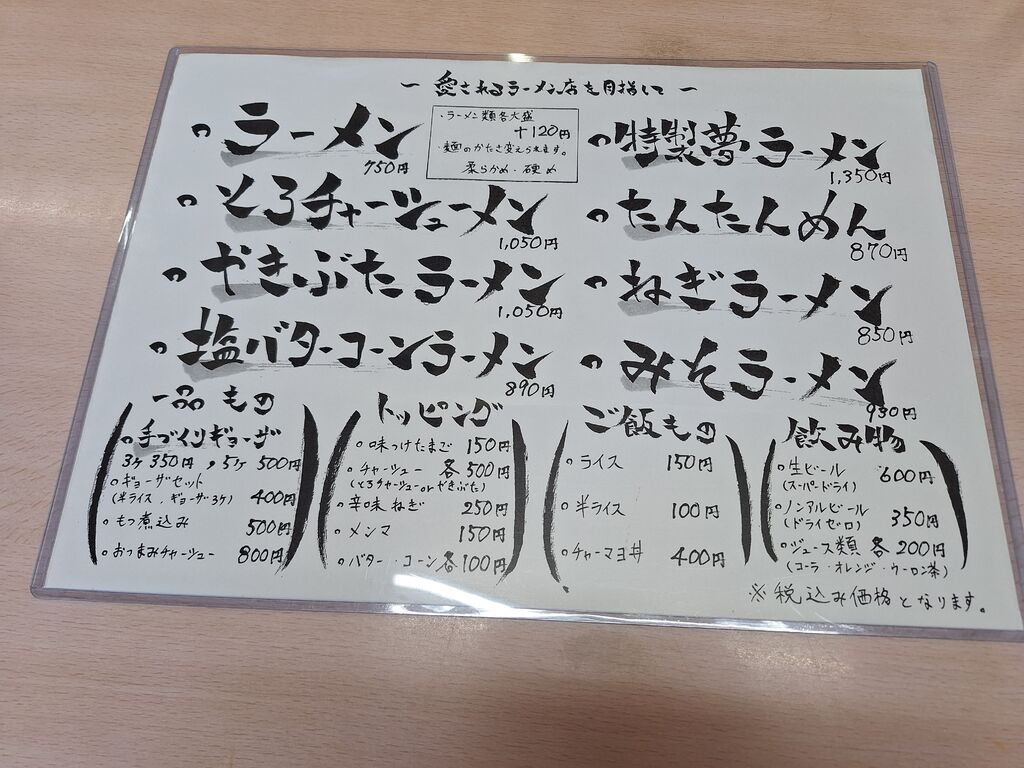 ー 愛されるラーメン店を目指して ー
ラーメン
750円
・ラーメン類各大盛
+120円
・麺のかたさ変えられます。
柔らかめ・硬め
とろチャーシューメン
1,050円
やきぶたラーメン
1,050円
塩バターコーンラーメン
890円
特製夢ラーメン
1,350円
たんたんめん
870円
ねぎラーメン
850円
みそラーメン
930円
一品もの
手づくりギョーザ
3ヶ 350円, 5ヶ 500円
ギョーザセット
(半ライス, ギョーザ3ヶ) 400円
もつ煮込み 500円
おつまみチャーシュー 800円
トッピング
味つけたまご 150円
チャーシュー 各500円
(とろチャーシューorやきぶた)
辛味ねぎ 250円
メンマ 150円
バター・コーン各100円
ご飯もの
ライス 150円
半ライス 100円
チャーマヨ丼 400円
飲み物
生ビール 600円
(スーパードライ)
ノンアルビール 350円
(ドライゼロ)
ジュース類 各200円
(コーラ・オレンジ・ウーロン茶)
※税込み価格となります。